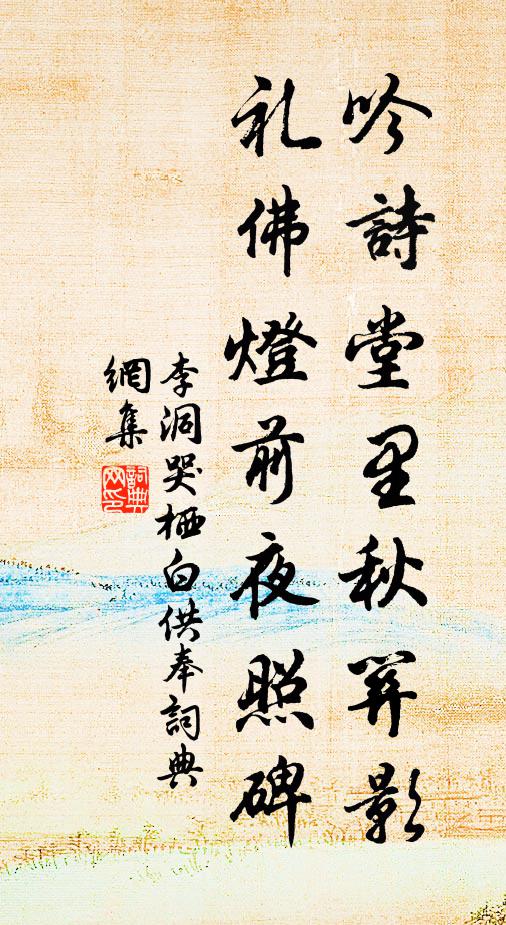 吟詩堂里秋關影
礼佛燈前夜照碑
李洞哭栖白供奉詞典
網集
詞典
网印